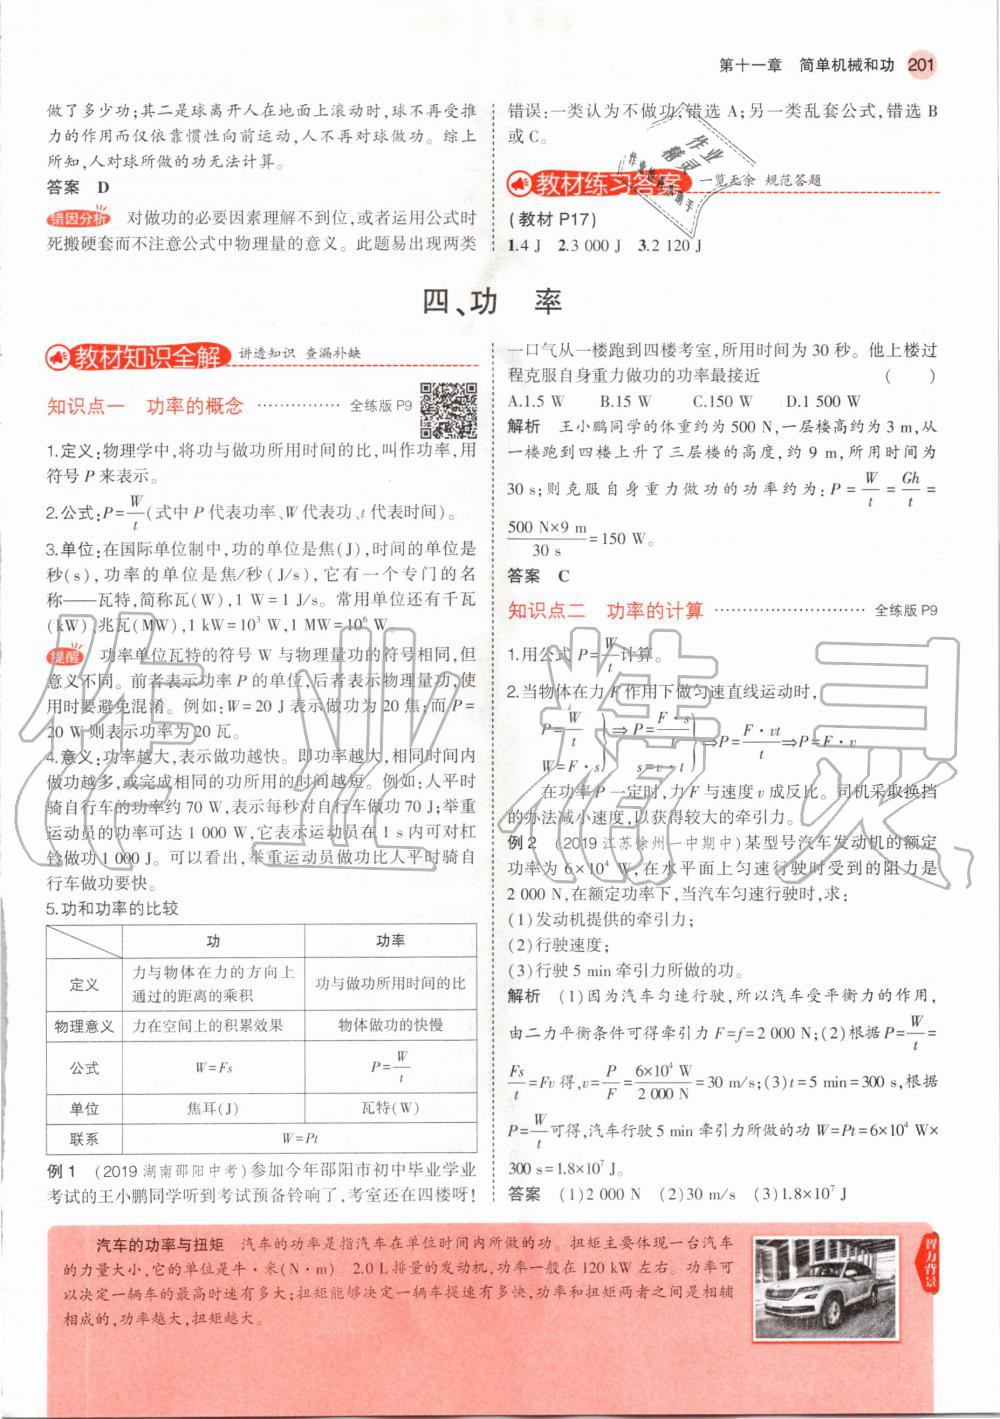 第十一章 简单机械和功 201
做了多少功;其二是球离开人在地面上滚动时,球不再受推
力的作用而仅依靠惯性向前运动,人不再对球做功。综上
所知,人对球所做的功无法计算。
答案 D
错因分析 对做功的必要因素理解不到位,或者运用公式时
死搬硬套而不注意公式中物理量的意义。此题易出现两类
错误:一类认为不做功,错选 A;另一类乱套公式,错选 B
或 C。
教材练习答案 一览无余 规范答题
(教材 P17)
1.4 J 2.3 000 J 3.2 120 J
四、功 率
教材知识全解 讲透知识 查漏补缺
知识点一 功率的概念 …………… 全练版 P9
1.定义:物理学中,将功与做功所用时间的比,叫作功率,用
符号 P 来表示。
2.公式:P=W/t(式中 P 代表功率、W 代表功、t 代表时间)。
3.单位:在国际单位制中,功的单位是焦(J),时间的单位是
秒(s),功率的单位是焦/秒(J/s),它有一个专门的名
称——瓦特,简称瓦(W),1 W=1 J/s。常用单位还有千瓦
(kW)、兆瓦(MW),1 kW=10³ W,1 MW=10⁶ W。
提醒 功率单位瓦特的符号 W 与物理量功的符号相同,但
意义不同。前者表示功率 P 的单位,后者表示物理量功,使
用时要避免混淆。例如:W=20 J 表示做功为 20 焦;而 P=
20 W 则表示功率为 20 瓦。
4.意义:功率越大,表示做功越快。即功率越大,相同时间内
做功越多,或完成相同的功所用的时间越短。例如:人平时
骑自行车的功率约 70 W,表示每秒对自行车做功 70 J;举重
运动员的功率可达 1 000 W,它表示运动员在 1 s 内可对杠
铃做功 1 000 J。可以看出,举重运动员做功比人平时骑自
行车做功要快。
5.功和功率的比较
功 功率
定义 力与物体在力的方向上通过的距离的乘积 功与做功所用时间的比
物理意义 力在空间上的积累效果 物体做功的快慢
公式 W=Fs P=W/t
单位 焦耳(J) 瓦特(W)
联系 W=Pt
例 1 (2019 湖南邵阳中考)参加今年邵阳市初中毕业学业
考试的王小鹏同学听到考试预备铃响了,考室还在四楼呀!
一口气从一楼跑到四楼考室,所用时间为 30 秒。他上楼过
程克服自身重力做功的功率最接近 ( )
A.1.5 W B.15 W C.150 W D.1 500 W
解析 王小鹏同学的体重约为 500 N,一层楼高约为 3 m,从
一楼跑到四楼上升了三层楼的高度,约 9 m,所用时间为
30 s;则克服自身重力做功的功率约为:P=W/t=Gh/t=
500 N×9 m/30 s=150 W。
答案 C
知识点二 功率的计算 ……………………… 全练版 P9
1.用公式 P=W/t计算。
2.当物体在力 F 作用下做匀速直线运动时,
P=W/t W=F·s}⇒P=F·s/t s=v·t}⇒P=F·vt/t⇒P=F·v
在功率 P 一定时,力 F 与速度 v 成反比。司机采取换挡
的办法减小速度,以获得较大的牵引力。
例 2 (2019 江苏徐州一中期中)某型号汽车发动机的额定
功率为 6×10⁴ W,在水平面上匀速行驶时受到的阻力是
2 000 N,在额定功率下,当汽车匀速行驶时,求:
(1)发动机提供的牵引力;
(2)行驶速度;
(3)行驶 5 min 牵引力所做的功。
解析 (1)因为汽车匀速行驶,所以汽车受平衡力的作用,
由二力平衡条件可得牵引力 F=f=2 000 N;(2)根据 P=W/t=
Fs/t=Fv 得,v=P/F=6×10⁴ W/2 000 N=30 m/s;(3)t=5 min=300 s,根据
P=W/t可得,汽车行驶 5 min 牵引力所做的功 W=Pt=6×10⁴ W×
300 s=1.8×10⁷ J。
答案 (1)2 000 N (2)30 m/s (3)1.8×10⁷ J
汽车的功率与扭矩 汽车的功率是指汽车在单位时间内所做的功。扭矩主要体现一台汽车
的力量大小,它的单位是牛·米(N·m)。2.0 L 排量的发动机,功率一般在 120 kW 左右。功率可
以决定一辆车的最高时速有多大;扭矩能够决定一辆车提速有多快,功率和扭矩两者之间是相辅
相成的,功率越大,扭矩越大。
智力背景
作业精灵
作业精灵